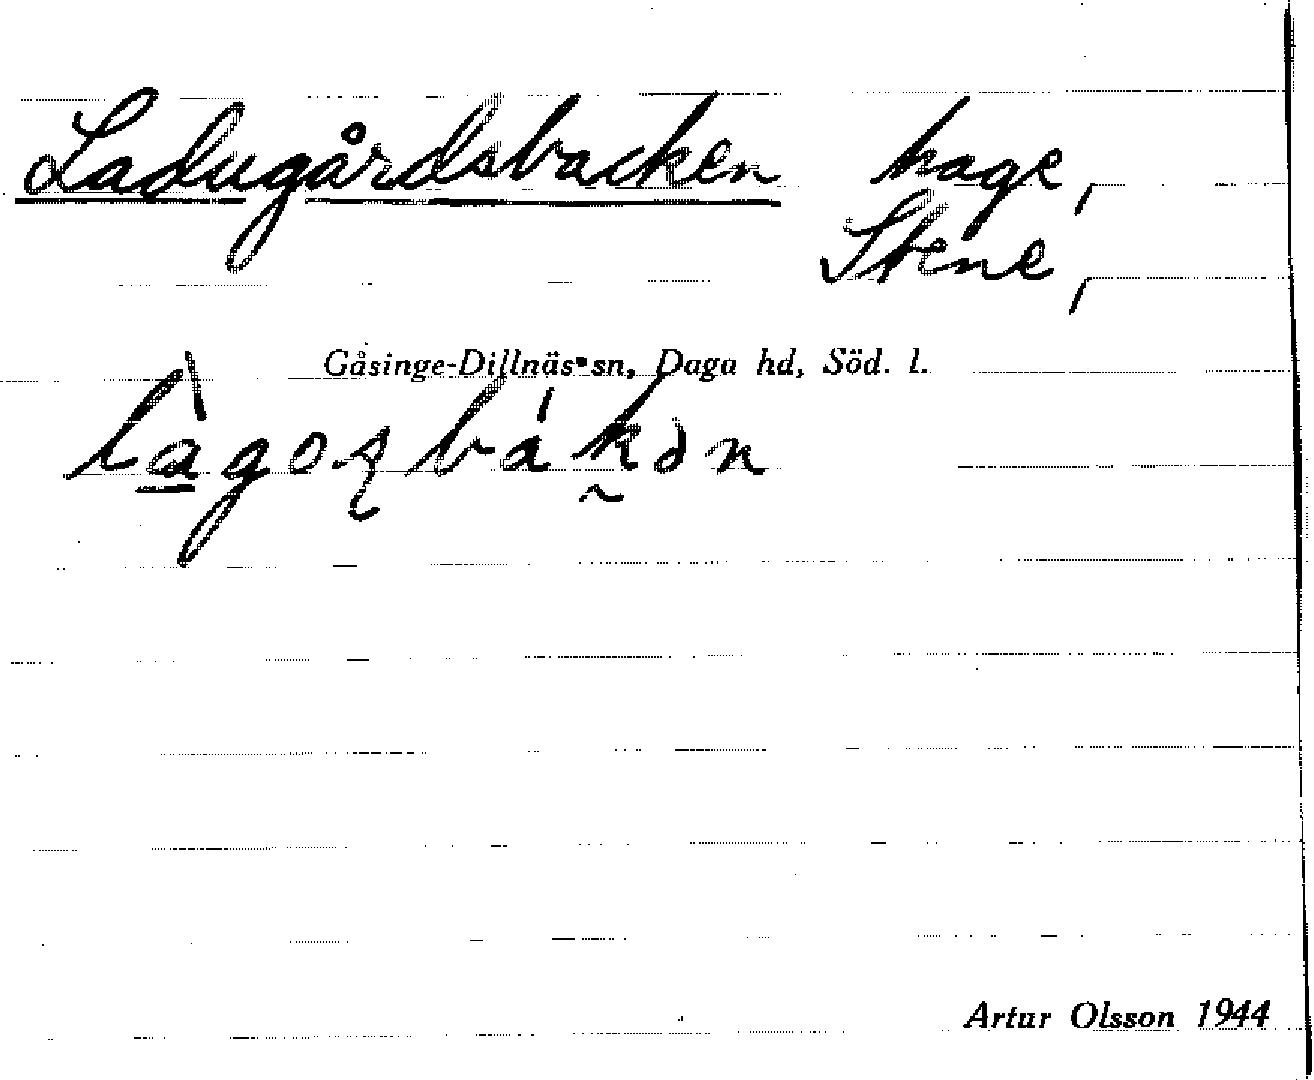 Ladugårdsbacken hage,
Stene,
Gåsinge-Dillnäs sn, Daga hd, Söd. l.
Artur Olsson 1944